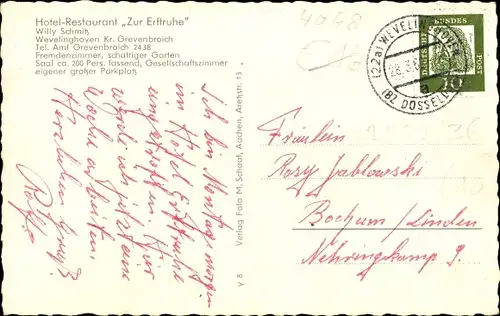 Hotel-Restaurant „Zur Erftruhe"
Willy Schmitz
Wevelinghoven Kr. Grevenbroich
Tel. Amt Grevenbroich 2438
Fremdenzimmer, schattiger Garten
Saal ca. 200 Pers. fassend, Gesellschaftszimmer
eigener großer Parkplatz
Ich bin Montag morgen
im Hotel Erftruhe
eingetroffen. Hier
werde ich jetzt eine
Woche arbeiten.
Herzlichen Gruß
V 8 Verlag Foto M. Schaaf, Aachen, Aretzstr. 13
4048
(22a) WEVELINGHOVEN
28.3.6
a
(BZ DÜSSELD
DEUTSCHE BUNDES POST
10
Fräulein
Rosy Jablowski
Bochum/Linden
Nehringkamp 9.